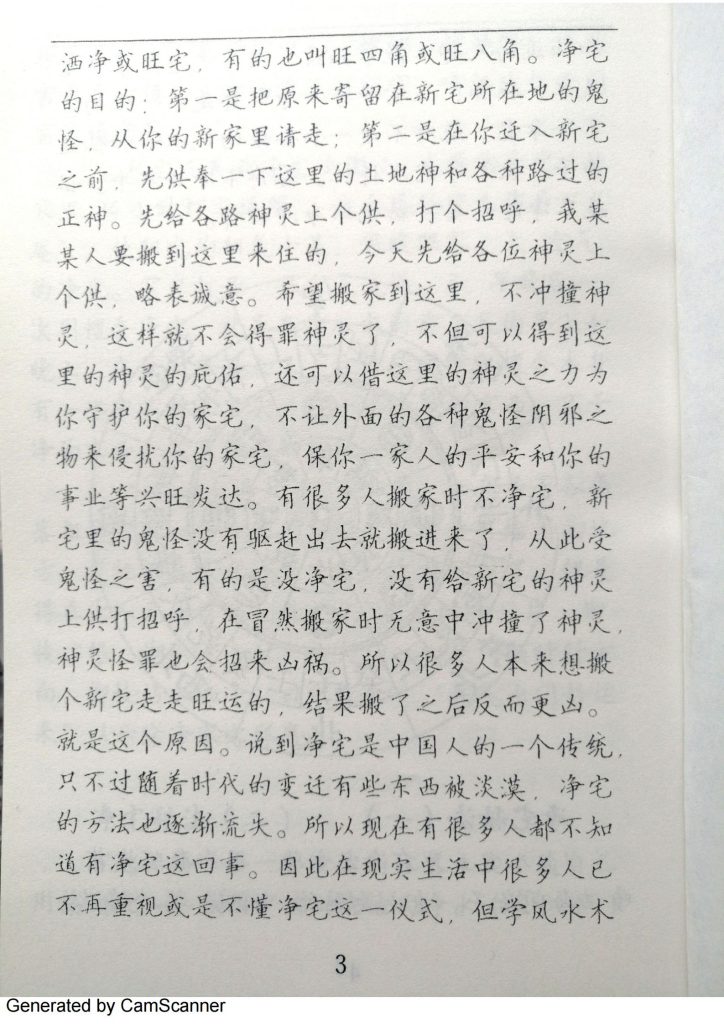 洒净或旺宅，有的也叫旺四角或旺八角。净宅
的目的：第一是把原来寄留在新宅所在地的鬼
怪，从你的新家里请走；第二是在你迁入新宅
之前，先供奉一下这里的土地神和各种路过的
正神。先给各路神灵上个供，打个招呼，我某
某人要搬到这里来住的，今天先给各位神灵上
个供，略表诚意。希望搬家到这里，不冲撞神
灵，这样就不会得罪神灵了，不但可以得到这
里的神灵的庇佑，还可以借这里的神灵之力为
你守护你的家宅，不让外面的各种鬼怪阴邪之
物来侵扰你的家宅，保你一家人的平安和你的
事业等兴旺发达。有很多人搬家时不净宅，新
宅里的鬼怪没有驱赶出去就搬进来了，从此受
鬼怪之害，有的是没净宅，没有给新宅的神灵
上供打招呼，在冒然搬家时无意中冲撞了神灵，
神灵怪罪也会招来凶祸。所以很多人本来想搬
个新宅走走旺运的，结果搬了之后反而更凶。
就是这个原因。说到净宅是中国人的一个传统，
只不过随着时代的变迁有些东西被淡漠，净宅
的方法也逐渐流失。所以现在有很多人都不知
道有净宅这回事。因此在现实生活中很多人已
不再重视或是不懂净宅这一仪式，但学风水术
3
Generated by CamScanner